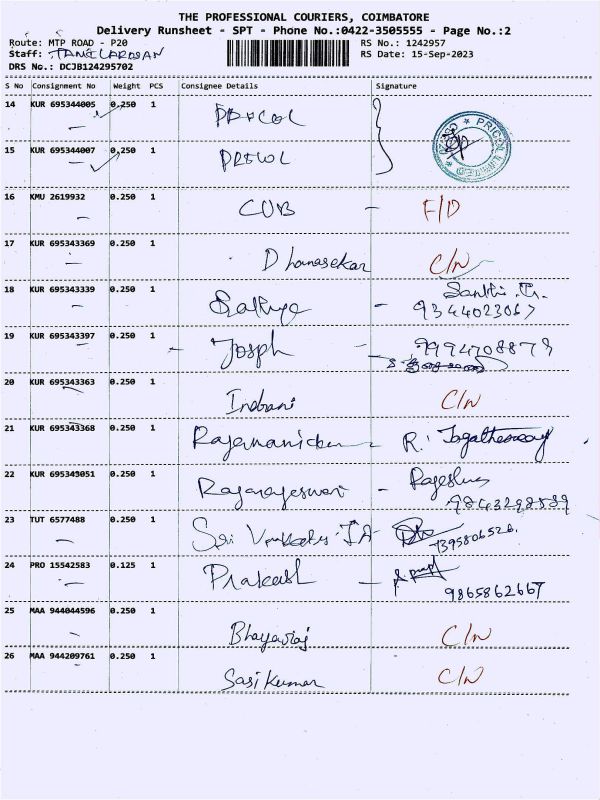 THE PROFESSIONAL COURIERS, COIMBATORE
Delivery Runsheet - SPT - Phone No.:0422-3505555 - Page No.:2
Route: MTP ROAD - P20
RS No.: 1242957
Staff:
RS Date: 15-Sep-2023
DRS No.: DCJB124295702
S No Consignment No Weight PCS Consignee Details Signature
14 KUR 695344005 0.250 1 PRICOL
PRICOL LIMITED
15 KUR 695344007 0.250 1 PRICOL
16 KMU 2619932 0.250 1 CUB - F/D
17 KUR 695343369 0.250 1 Dhanasekar C/N
18 KUR 695343339 0.250 1 Sathya - Santhi
9344023067
19 KUR 695343397 0.250 1 Josph - 9994708878
20 KUR 695343363 0.250 1 Indrani C/N
21 KUR 695343368 0.250 1 Rajamanickam - R.
22 KUR 695343051 0.250 1 Rajarajeswari - Rajeshwa
9843298589
23 TUT 6577488 0.250 1 Sri
7395806526.
24 PRO 15542583 0.125 1 Prakash -
9865862667
25 MAA 944044596 0.250 1 Bhagavraj C/N
26 MAA 944209761 0.250 1 Sasikumar C/N